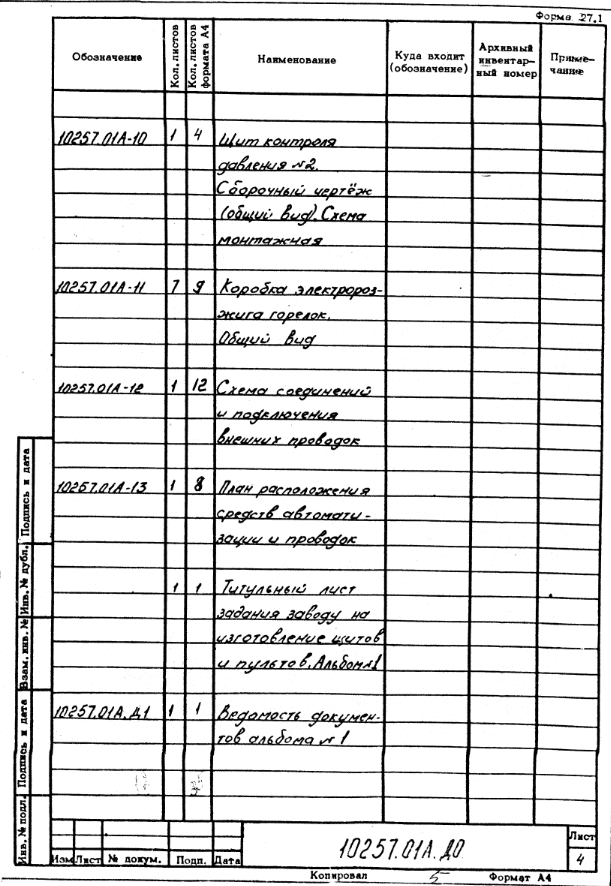 Форма 27.1
Обозначение Кол. листов Кол. листов формата А4 Наименование Куда входит (обозначение) Архивный инвентар- ный номер Приме- чание
10257.01А-10 1 4 Щит контроля
давления №2.
Сборочный чертёж
(общий вид). Схема
монтажная
10257.01А-11 7 9 Коробка электророз-
жига горелок.
Общий вид
10257.01А-12 1 12 Схема соединений
и подключения
внешних проводок
10257.01А-13 1 8 План расположения
средств автомати-
зации и проводок
1 1 Титульный лист
задания заводу на
изготовление щитов
и пультов. Альбом №1
10257.01А.Д1 1 1 Ведомость докумен-
тов альбома № 1
Инв. № подл. Подпись и дата Взам. инв. № Инв. № дубл. Подпись и дата
Изм Лист № докум. Подп. Дата
10257.01А.Д0
Лист
4
Копировал 5 Формат А4